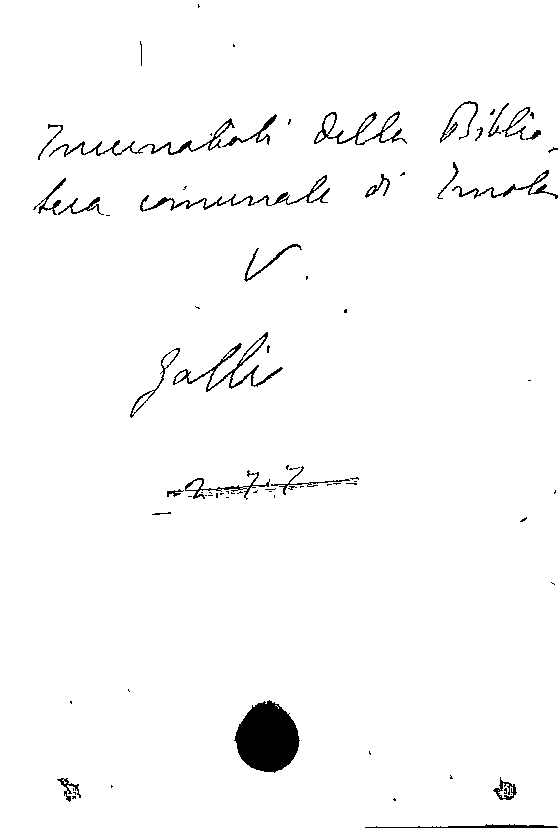 Incunaboli della Biblio-
teca comunale di Imola
V.
Galli